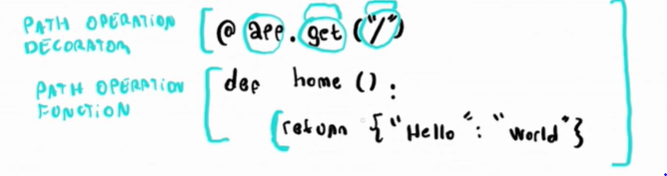 PATH OPERATION
DECORATOR
@ app.get ("/")
PATH OPERATION
FUNCTION
def home ():
return {"Hello": "World"}